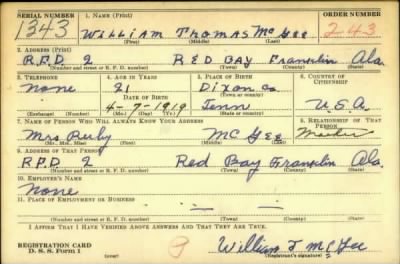 SERIAL NUMBER 1. NAME (Print) ORDER NUMBER
1343 William Thomas McGee 243
(First) (Middle) (Last)
2. ADDRESS (Print)
R.F.D 2 RED BAY Franklin Ala.
(Number and street or R. F. D. number) (Town) (County) (State)
3. TELEPHONE 4. AGE IN YEARS 5. PLACE OF BIRTH 6. COUNTRY OF CITIZENSHIP
None 21 Dixon Co
DATE OF BIRTH
4-7-1919 Tenn U.S.A
(Exchange) (Number) (Mo.) (Day) (Yr.) (State or country)
7. NAME OF PERSON WHO WILL ALWAYS KNOW YOUR ADDRESS 8. RELATIONSHIP OF THAT PERSON
Mrs Ruby McGee Mother
(Mr., Mrs., Miss) (First) (Middle) (Last)
9. ADDRESS OF THAT PERSON
R.F.D 2 Red Bay Franklin Ala.
(Number and street or R. F. D. number) (Town) (County) (State)
10. EMPLOYER'S NAME
None
11. PLACE OF EMPLOYMENT OR BUSINESS
(Number and street or R. F. D. number) (Town) (County) (State)
I AFFIRM THAT I HAVE VERIFIED ABOVE ANSWERS AND THAT THEY ARE TRUE.
REGISTRATION CARD
D. S. S. Form 1 William T McGee
(Registrant's signature)